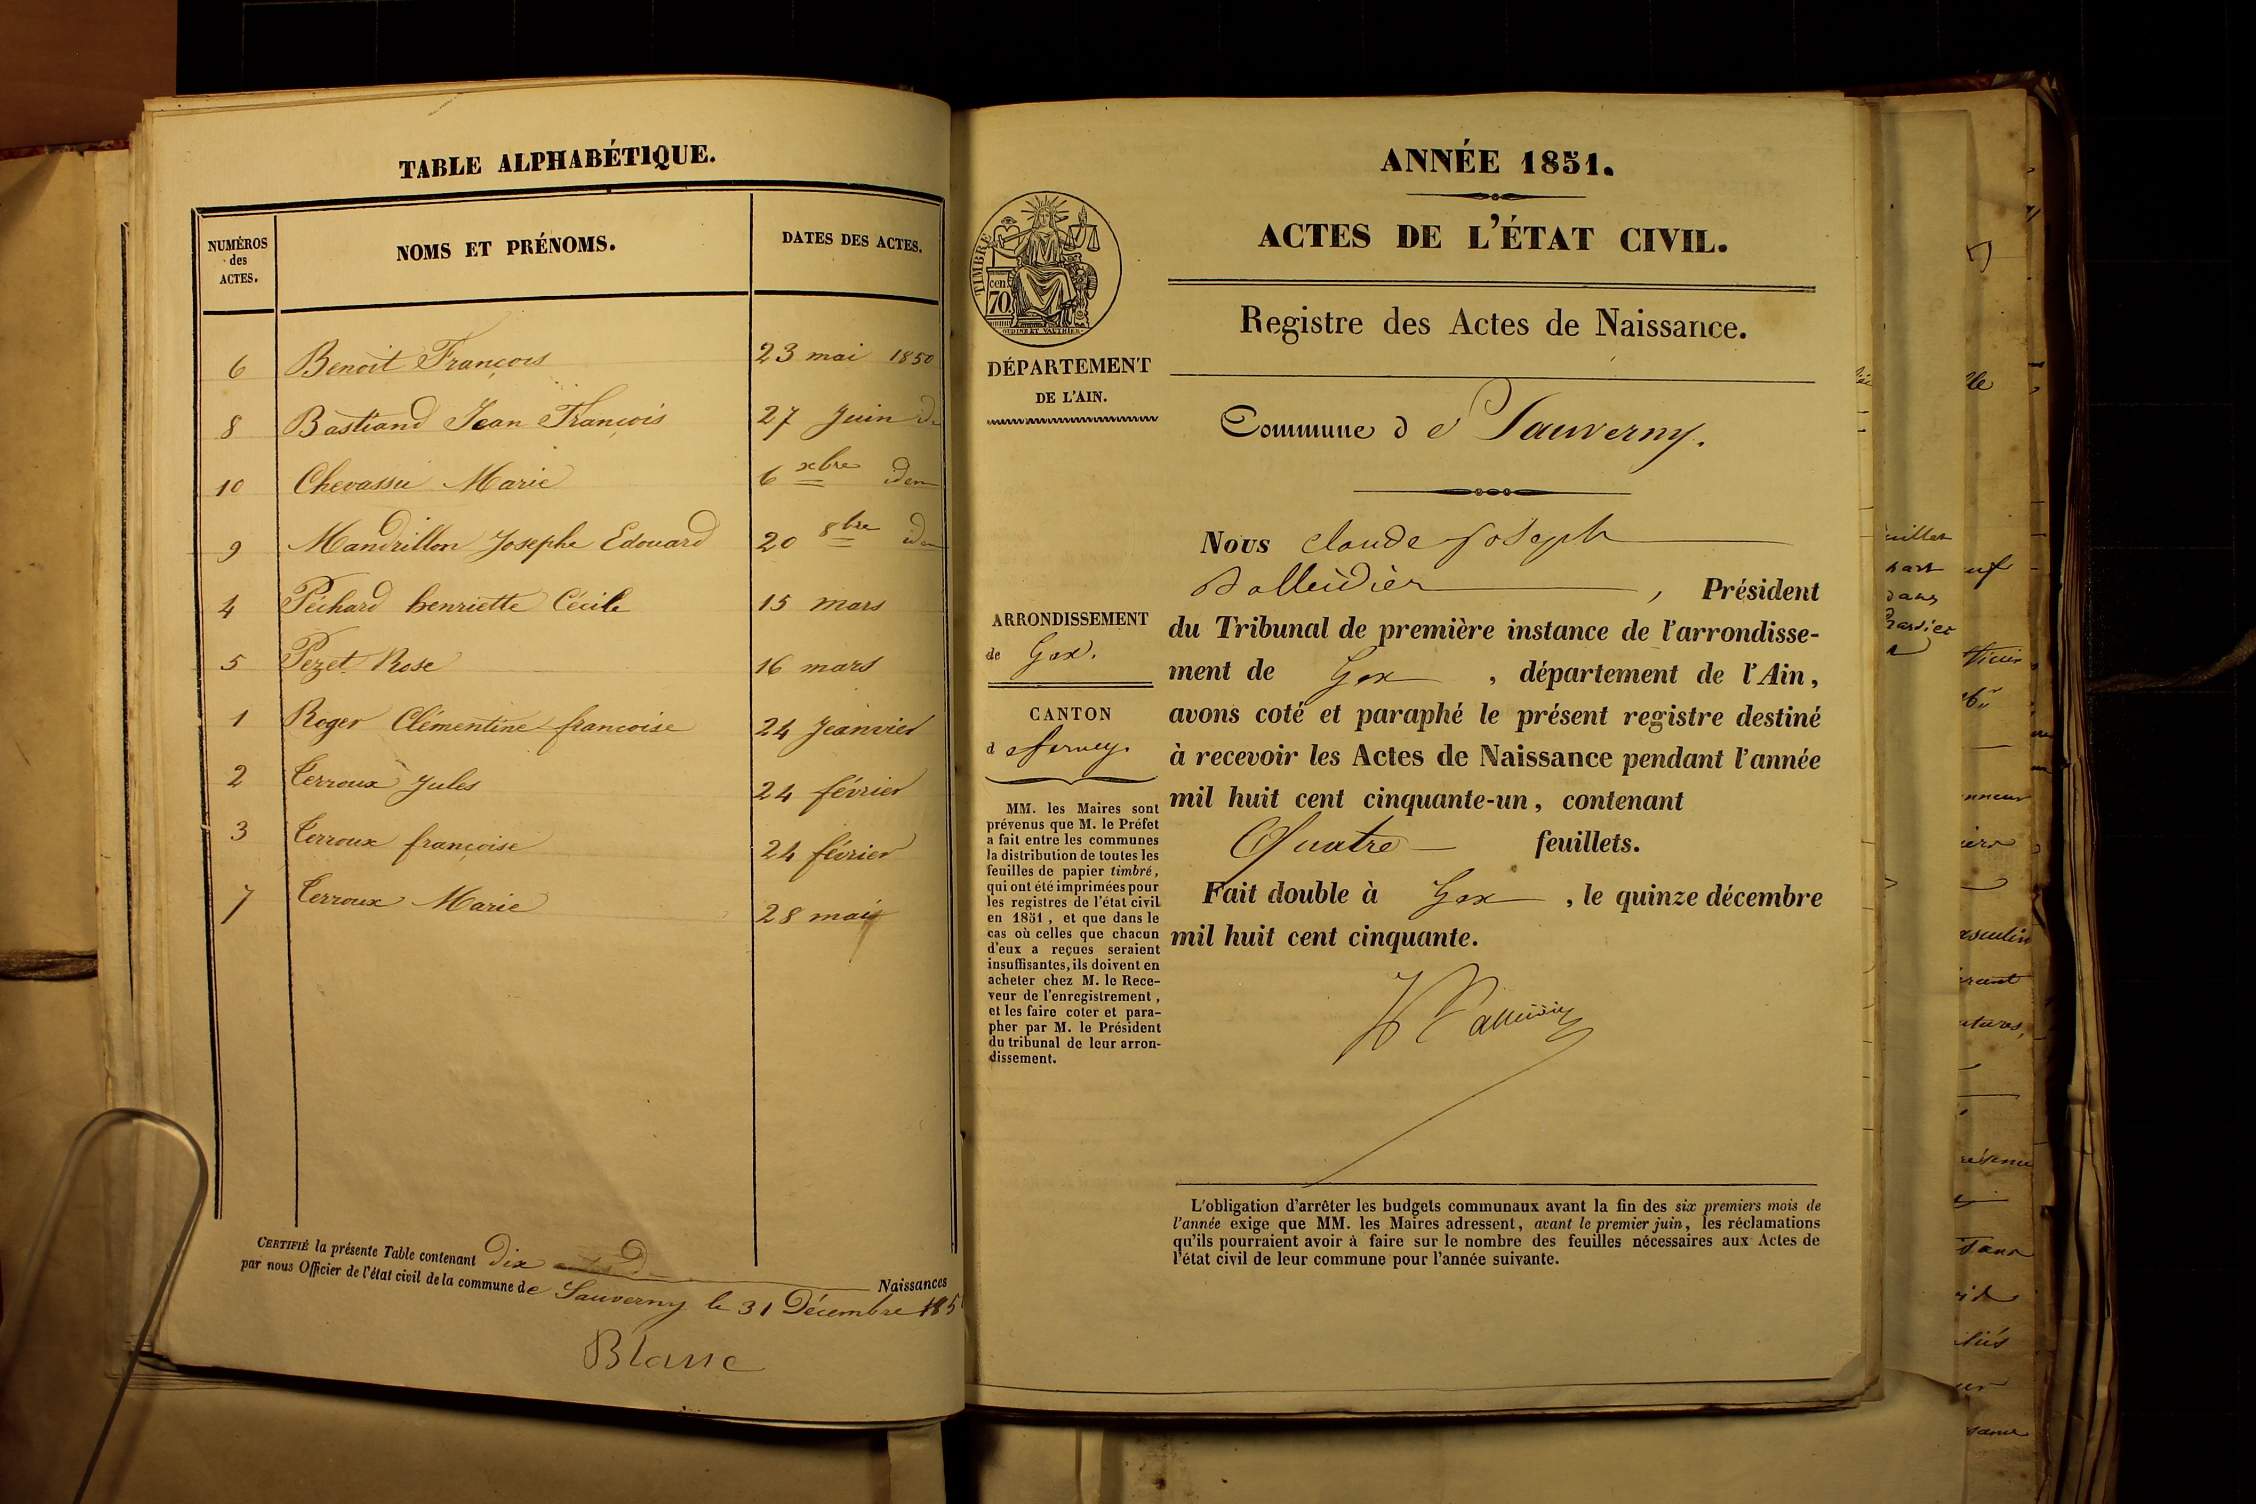 TABLE ALPHABÉTIQUE.
NUMÉROS des ACTES. NOMS ET PRÉNOMS. DATES DES ACTES.
6 Benoit François 23 mai 1850
8 Bastiand Jean François 27 Juin
10 Chevassu Marie 6 xbre idem
9 Mandrillon Josephe Edouard 20 8bre
4 Péchard henriette Cécile 15 mars
5 Pezet Rose 16 mars
1 Roger Clémentine françoise 24 Jeanvier
2 Terroux Jules 24 février
3 Terroux françoise 24 février
7 Terroux Marie 28 mai
CERTIFIÉ la présente Table contenant Dix Naissances
par nous Officier de l'état civil de la commune de Sauverny le 31 Décembre 185
Blanc
ANNÉE 1851.
ACTES DE L'ÉTAT CIVIL.
Registre des Actes de Naissance.
TIMBRE
70 cen
DÉPARTEMENT
DE L'AIN.
Commune de Sauverny.
ARRONDISSEMENT
de Gex.
CANTON
d ferney.
MM. les Maires sont
prévenus que M. le Préfet
a fait entre les communes
la distribution de toutes les
feuilles de papier timbré,
qui ont été imprimées pour
les registres de l'état civil
en 1851, et que dans le
cas où celles que chacun
d'eux a reçues seraient
insuffisantes, ils doivent en
acheter chez M. le Rece-
veur de l'enregistrement,
et les faire coter et para-
pher par M. le Président
du tribunal de leur arron-
dissement.
Nous claude joseph
, Président
du Tribunal de première instance de l'arrondisse-
ment de Gex, département de l'Ain,
avons coté et paraphé le présent registre destiné
à recevoir les Actes de Naissance pendant l'année
mil huit cent cinquante-un, contenant
Quatre feuillets.
Fait double à Gex, le quinze décembre
mil huit cent cinquante.
L'obligation d'arrêter les budgets communaux avant la fin des six premiers mois de
l'année exige que MM. les Maires adressent, avant le premier juin, les réclamations
qu'ils pourraient avoir à faire sur le nombre des feuilles nécessaires aux Actes de
l'état civil de leur commune pour l'année suivante.